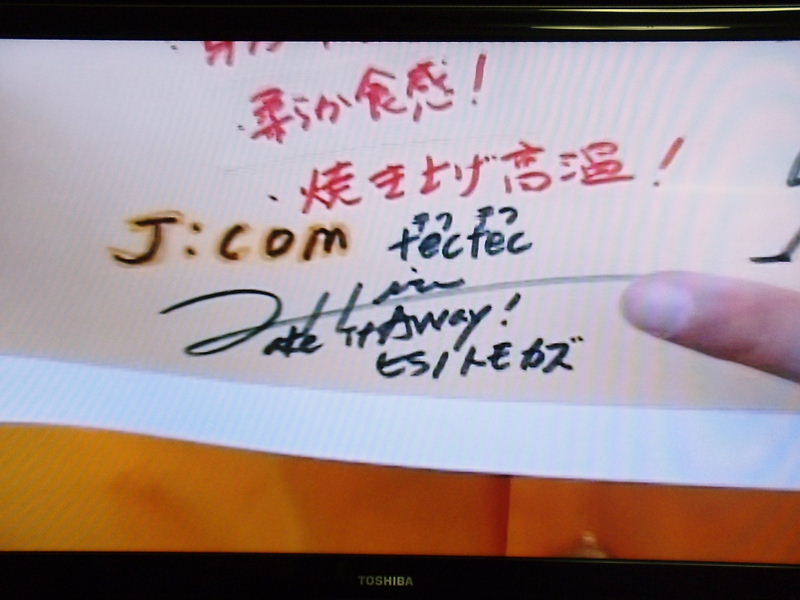 ・柔らか食感!
・焼き上げ高温!
J:com
テツ テツ
tectec
Take it Away!
トモカズ
TOSHIBA